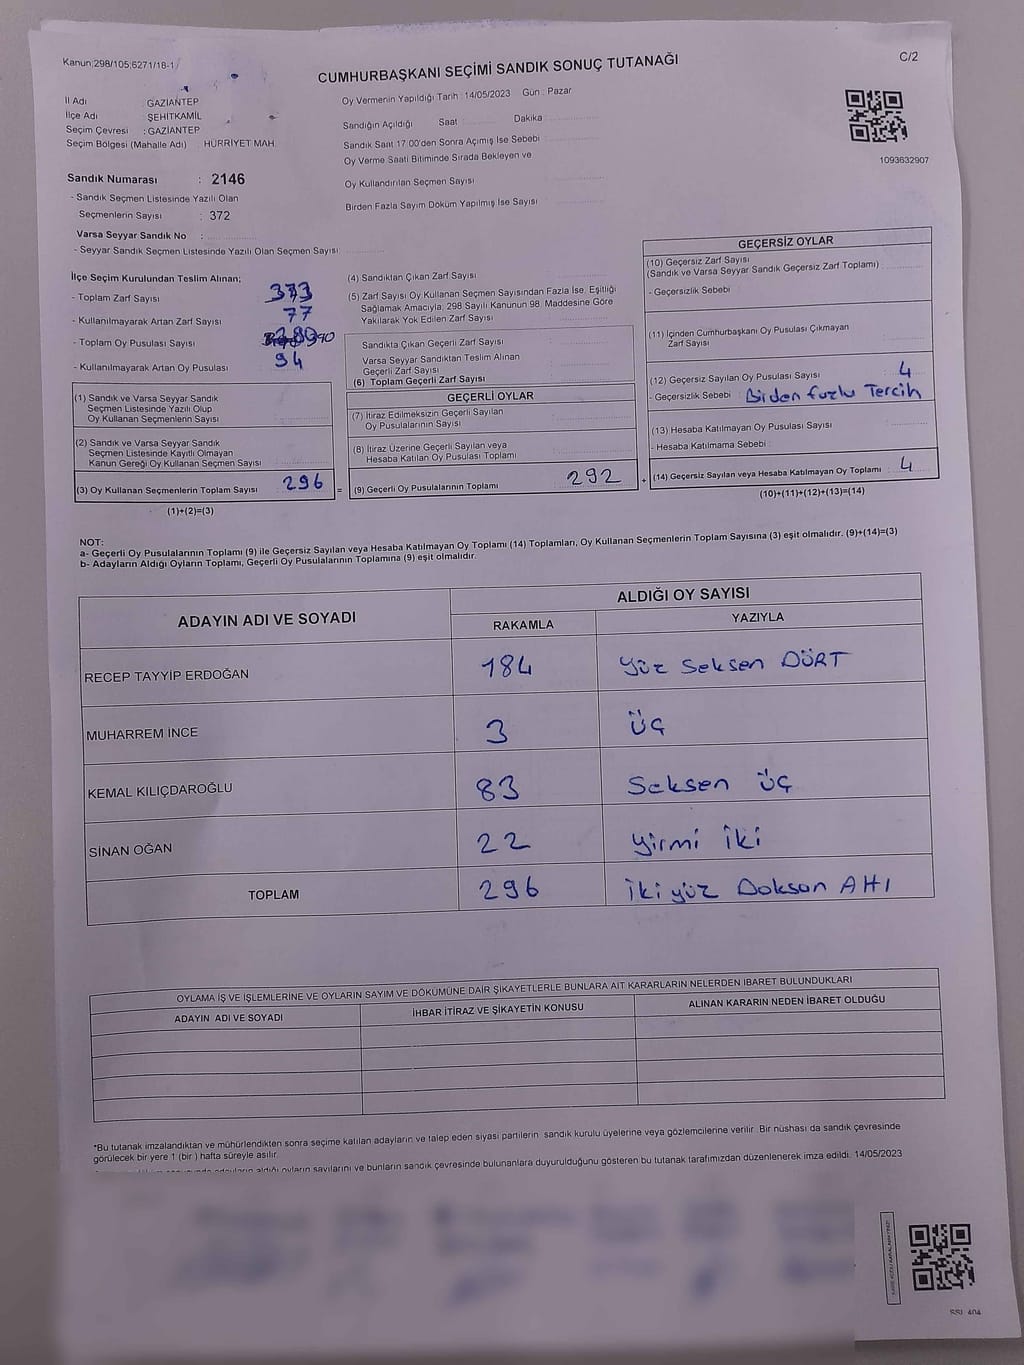 Kanun;298/105;6271/18-1
CUMHURBAŞKANI SEÇİMİ SANDIK SONUÇ TUTANAĞI
C/2
İl Adı : GAZİANTEP
İlçe Adı : ŞEHİTKAMİL
Seçim Çevresi : GAZİANTEP
Seçim Bölgesi (Mahalle Adı) : HÜRRİYET MAH.
Oy Vermenin Yapıldığı Tarih : 14/05/2023 Gün : Pazar
Sandığın Açıldığı Saat Dakika
Sandık Saat 17:00'den Sonra Açımış İse Sebebi
Oy Verme Saati Bitiminde Sırada Bekleyen ve
Oy Kullandırılan Seçmen Sayısı
Birden Fazla Sayım Döküm Yapılmış İse Sayısı
1093632907
Sandık Numarası : 2146
- Sandık Seçmen Listesinde Yazılı Olan
Seçmenlerin Sayısı : 372
Varsa Seyyar Sandık No :
- Seyyar Sandık Seçmen Listesinde Yazılı Olan Seçmen Sayısı:
İlçe Seçim Kurulundan Teslim Alınan;
- Toplam Zarf Sayısı 373
- Kullanılmayarak Artan Zarf Sayısı 77
- Toplam Oy Pusulası Sayısı
- Kullanılmayarak Artan Oy Pusulası 94
(1) Sandık ve Varsa Seyyar Sandık
Seçmen Listesinde Yazılı Olup
Oy Kullanan Seçmenlerin Sayısı
(2) Sandık ve Varsa Seyyar Sandık
Seçmen Listesinde Kayıtlı Olmayan
Kanun Gereği Oy Kullanan Seçmen Sayısı
(3) Oy Kullanan Seçmenlerin Toplam Sayısı 296 =
(1)+(2)=(3)
(4) Sandıktan Çıkan Zarf Sayısı
(5) Zarf Sayısı Oy Kullanan Seçmen Sayısından Fazla İse, Eşitliği
Sağlamak Amacıyla; 298 Sayılı Kanunun 98. Maddesine Göre
Yakılarak Yok Edilen Zarf Sayısı
Sandıkta Çıkan Geçerli Zarf Sayısı
Varsa Seyyar Sandıktan Teslim Alınan
Geçerli Zarf Sayısı
(6) Toplam Geçerli Zarf Sayısı
GEÇERLİ OYLAR
(7) İtiraz Edilmeksizin Geçerli Sayılan
Oy Pusulalarının Sayısı
(8) İtiraz Üzerine Geçerli Sayılan veya
Hesaba Katılan Oy Pusulası Toplamı
(9) Geçerli Oy Pusulalarının Toplamı 292 +
GEÇERSİZ OYLAR
(10) Geçersiz Zarf Sayısı
(Sandık ve Varsa Seyyar Sandık Geçersiz Zarf Toplamı)
- Geçersizlik Sebebi
(11) İçinden Cumhurbaşkanı Oy Pusulası Çıkmayan
Zarf Sayısı
(12) Geçersiz Sayılan Oy Pusulası Sayısı 4
- Geçersizlik Sebebi : Birden fazla Tercih
(13) Hesaba Katılmayan Oy Pusulası Sayısı
- Hesaba Katılmama Sebebi
(14) Geçersiz Sayılan veya Hesaba Katılmayan Oy Toplamı 4
(10)+(11)+(12)+(13)=(14)
NOT:
a- Geçerli Oy Pusulalarının Toplamı (9) ile Geçersiz Sayılan veya Hesaba Katılmayan Oy Toplamı (14) Toplamları, Oy Kullanan Seçmenlerin Toplam Sayısına (3) eşit olmalıdır. (9)+(14)=(3)
b- Adayların Aldığı Oyların Toplamı, Geçerli Oy Pusulalarının Toplamına (9) eşit olmalıdır.
ADAYIN ADI VE SOYADI
ALDIĞI OY SAYISI
RAKAMLA YAZIYLA
RECEP TAYYİP ERDOĞAN 184 Yüz Seksen DÖRT
MUHARREM İNCE 3 üç
KEMAL KILIÇDAROĞLU 83 Seksen üç
SİNAN OĞAN 22 yirmi iki
TOPLAM 296 iki yüz Doksan AHI
OYLAMA İŞ VE İŞLEMLERİNE VE OYLARIN SAYIM VE DÖKÜMÜNE DAİR ŞİKAYETLERLE BUNLARA AİT KARARLARIN NELERDEN İBARET BULUNDUKLARI
ADAYIN ADI VE SOYADI İHBAR İTİRAZ VE ŞİKAYETİN KONUSU ALINAN KARARIN NEDEN İBARET OLDUĞU
*Bu tutanak imzalandıktan ve mühürlendikten sonra seçime katılan adayların ve talep eden siyasi partilerin sandık kurulu üyelerine veya gözlemcilerine verilir. Bir nüshası da sandık çevresinde
görülecek bir yere 1 (bir) hafta süreyle asılır.
adayların aldığı oyların sayılarını ve bunların sandık çevresinde bulunanlara duyurulduğunu gösteren bu tutanak tarafımızdan düzenlenerek imza edildi. 14/05/2023